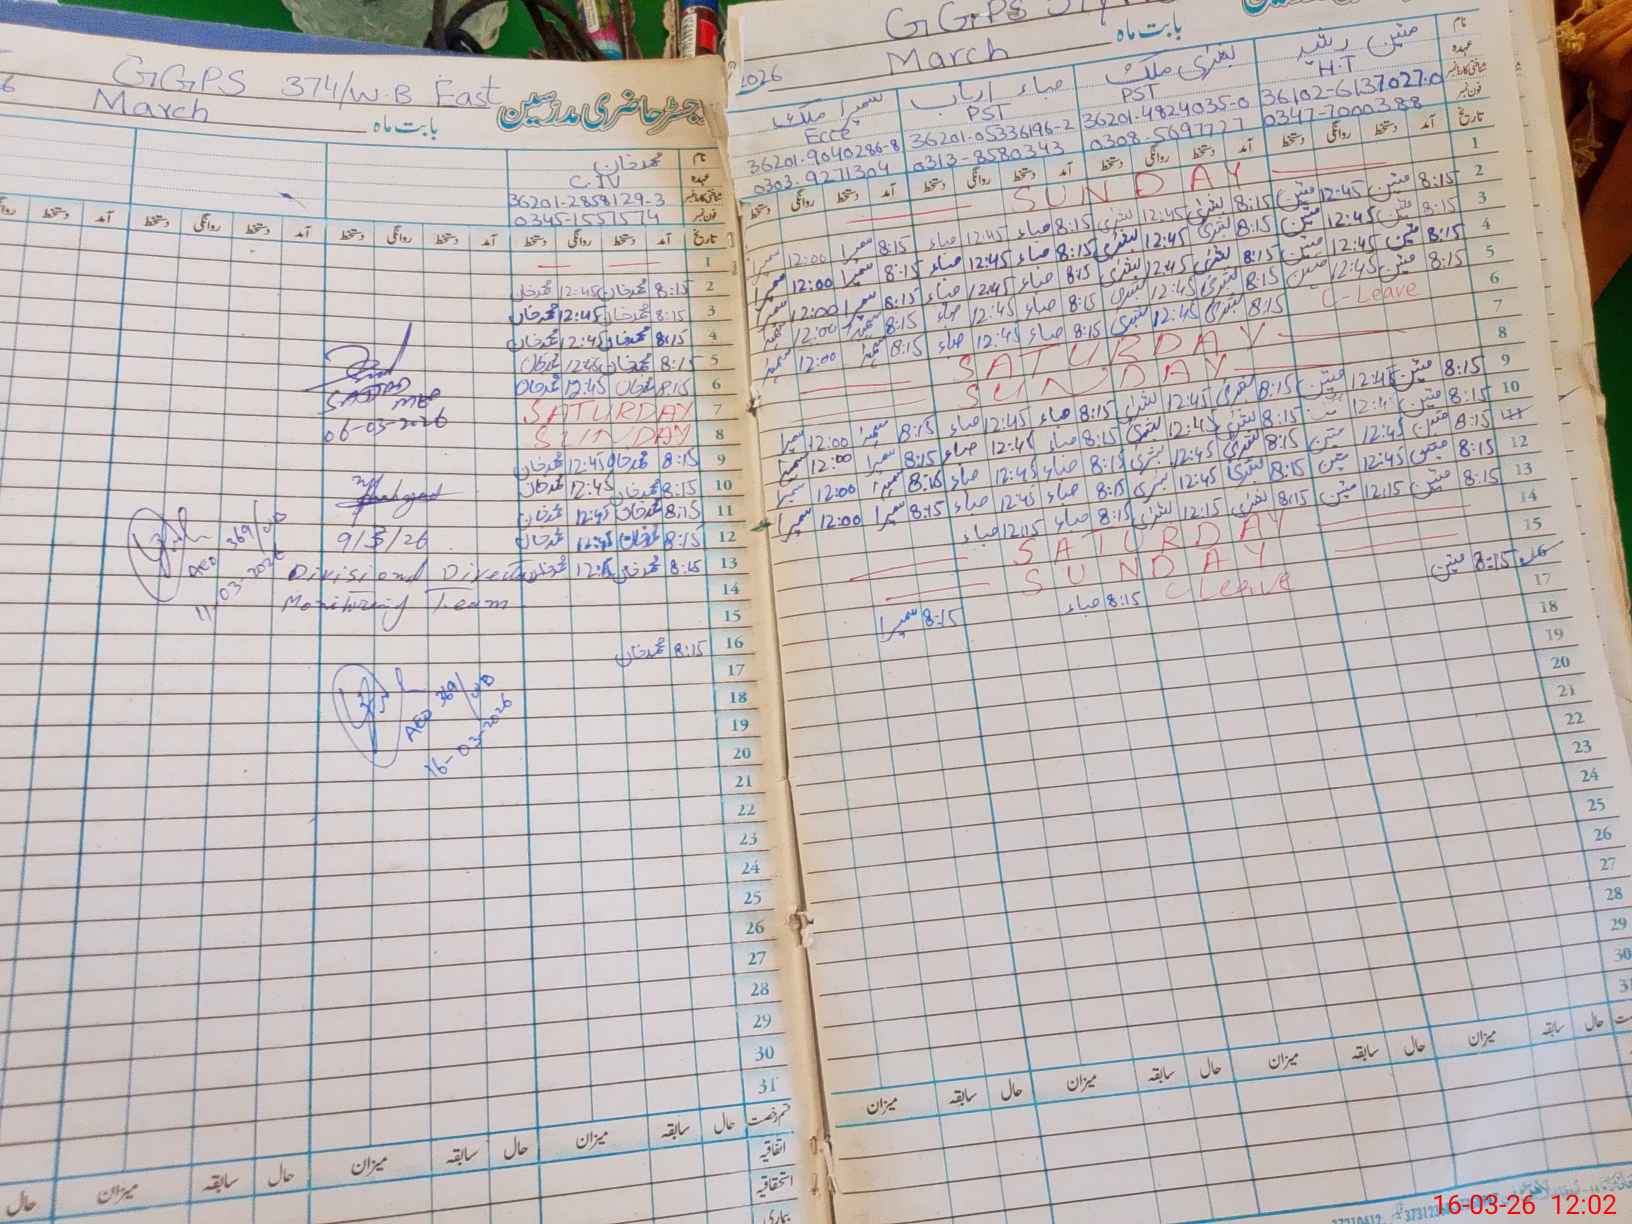 GGPS 374/W.B East
رجسٹر حاضری مدرسین
March بابت ماہ
نام محمد خان
عہدہ C.IV
شناختی کارڈ نمبر 36201-2858129-3
فون نمبر 0345-1557574
تاریخ آمد دستخط روانگی دستخط آمد دستخط روانگی دستخط آمد دستخط روانگی دستخط آمد
1
2 8:15 محمد خان 12:45 محمد خان
3 8:15 محمد خان 12:45 محمد خان
4 8:15 محمد خان 12:45 محمد خان
5 8:15 محمد خان 12:45 محمد خان
6 8:15 محمد خان 12:45 محمد خان
7 SATURDAY
8 SUNDAY
06-03-2026
9 8:15 محمد خان 12:45 محمد خان
10 8:15 محمد خان 12:45 محمد خان
11 8:15 محمد خان 12:45 محمد خان
12 8:15 محمد خان 12:45 محمد خان
9/3/26
13 8:15 محمد خان 12:15 محمد خان
Divisional
Monitoring Team
AEO 369/WB
11-03-2026
14
15
16 8:15 محمد خان
17
AEO 369/WB
16-03-2026
18
19
20
21
22
23
24
25
26
27
28
29
30
31
قسم رخصت حال سابقہ میزان حال سابقہ میزان حال سابقہ میزان حال
اتفاقیہ
استحقاقیہ
بیماری
GGPS
2026 March بابت ماہ
نام متین رشید بشریٰ ملک صباء ارباب سمیرا ملک
عہدہ H.T PST PST Ecce
شناختی کارڈ نمبر 36102-6137027-0 36201-4824035-0 36201-05336196-2 36201-9040286-8
فون نمبر 0347-7000388 0308-5697727 0313-8580343 0303-9271304
تاریخ آمد دستخط روانگی دستخط آمد دستخط روانگی دستخط آمد دستخط روانگی دستخط آمد دستخط روانگی دستخط
1 SUNDAY
2 8:15 متین 12:45 متین 8:15 بشریٰ 12:45 بشریٰ 8:15 صباء 12:45 صباء 8:15 سمیرا 12:00 سمیرا
3 8:15 متین 12:45 متین 8:15 بشریٰ 12:45 بشریٰ 8:15 صباء 12:45 صباء 8:15 سمیرا 12:00 سمیرا
4 8:15 متین 12:45 متین 8:15 بشریٰ 12:45 بشریٰ 8:15 صباء 12:45 صباء 8:15 سمیرا 12:00 سمیرا
5 8:15 متین 12:45 متین 8:15 بشریٰ 12:45 بشریٰ 8:15 صباء 12:45 صباء 8:15 سمیرا 12:00 سمیرا
6 C-Leave 8:15 بشریٰ 12:45 بشریٰ 8:15 صباء 12:45 صباء 8:15 سمیرا 12:00 سمیرا
7 SATURDAY
8 SUNDAY
9 8:15 متین 12:45 متین 8:15 بشریٰ 12:45 بشریٰ 8:15 صباء 12:45 صباء 8:15 سمیرا 12:00 سمیرا
10 8:15 متین 12:45 8:15 بشریٰ 12:45 بشریٰ 8:15 صباء 12:45 صباء 8:15 سمیرا 12:00 سمیرا
11 8:15 متین 12:45 متین 8:15 بشریٰ 12:45 بشریٰ 8:15 صباء 12:45 صباء 8:15 سمیرا 12:00 سمیرا
12 8:15 متین 12:45 متین 8:15 بشریٰ 12:45 بشریٰ 8:15 صباء 12:45 صباء 8:15 سمیرا 12:00 سمیرا
13 8:15 متین 12:15 متین 8:15 بشریٰ 12:15 بشریٰ 8:15 صباء 12:15 صباء
14 SATURDAY
15 SUNDAY
16 8:15 متین C Leave 8:15 صباء 8:15 سمیرا
17
18
19
20
21
22
23
24
25
26
27
28
29
30
31
حال سابقہ میزان حال سابقہ میزان حال سابقہ میزان حال سابقہ میزان
16-03-26 12:02